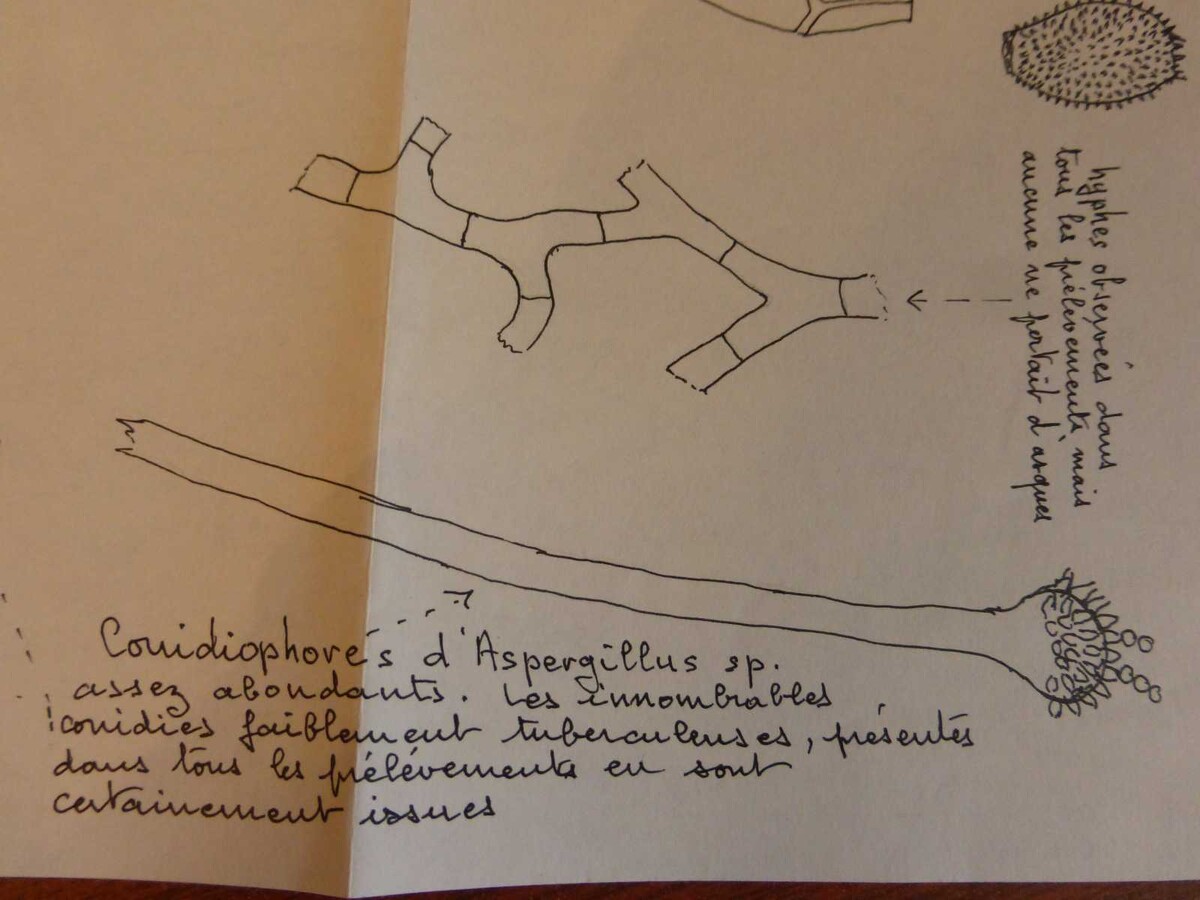 hyphes observées dans
tous les prélèvements, mais
aucune ne portait d'asques
Conidiophores d'Aspergillus sp.
assez abondants. Les innombrables
conidies faiblement tuberculeuses, présentes
dans tous les prélèvements en sont
certainement issues